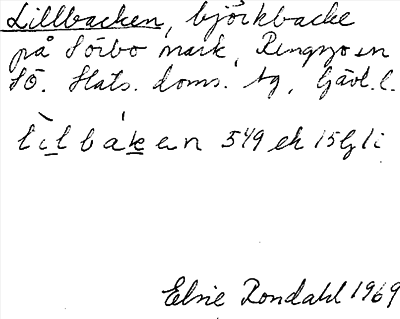 Lillbacken, björkbacke
på Sörbo mark, Rengsjo sn
Sö. Häls. doms. bg, Gävl. l.
lìlbáken 549 ek 15
Elsie Rondahl 1969